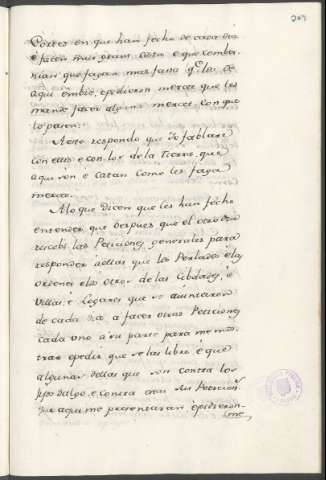 Cortes en que han fecho de cada dia
e facen mui grant costa e que combe-
nian que fagan mas fasta q.e los de
aqui embie, epedieron merced que les
mande facer alguna merced con que
lo pasen.
A esto respondo que Yo fablare
con ellos e con los de la Tierra, que
aqui son e catan como les faga
merced.
A lo que dicen que les han fecho
entender que despues que el otro dia
recebi las Peticiones generales para
responder a ellas que los Perlados e las
ordenes e los otros de las Cibdades, e
Villas, e Logares que se ayuntaron
de cada dia a facer otras Peticiones
cada uno a su parte para me mos-
trar e pedir que se las libre e que
algunas dellas que son contra los
fijosdalgo, e contra otras sus Peticion.s
que aqui me presentaran e pidieron-
me,